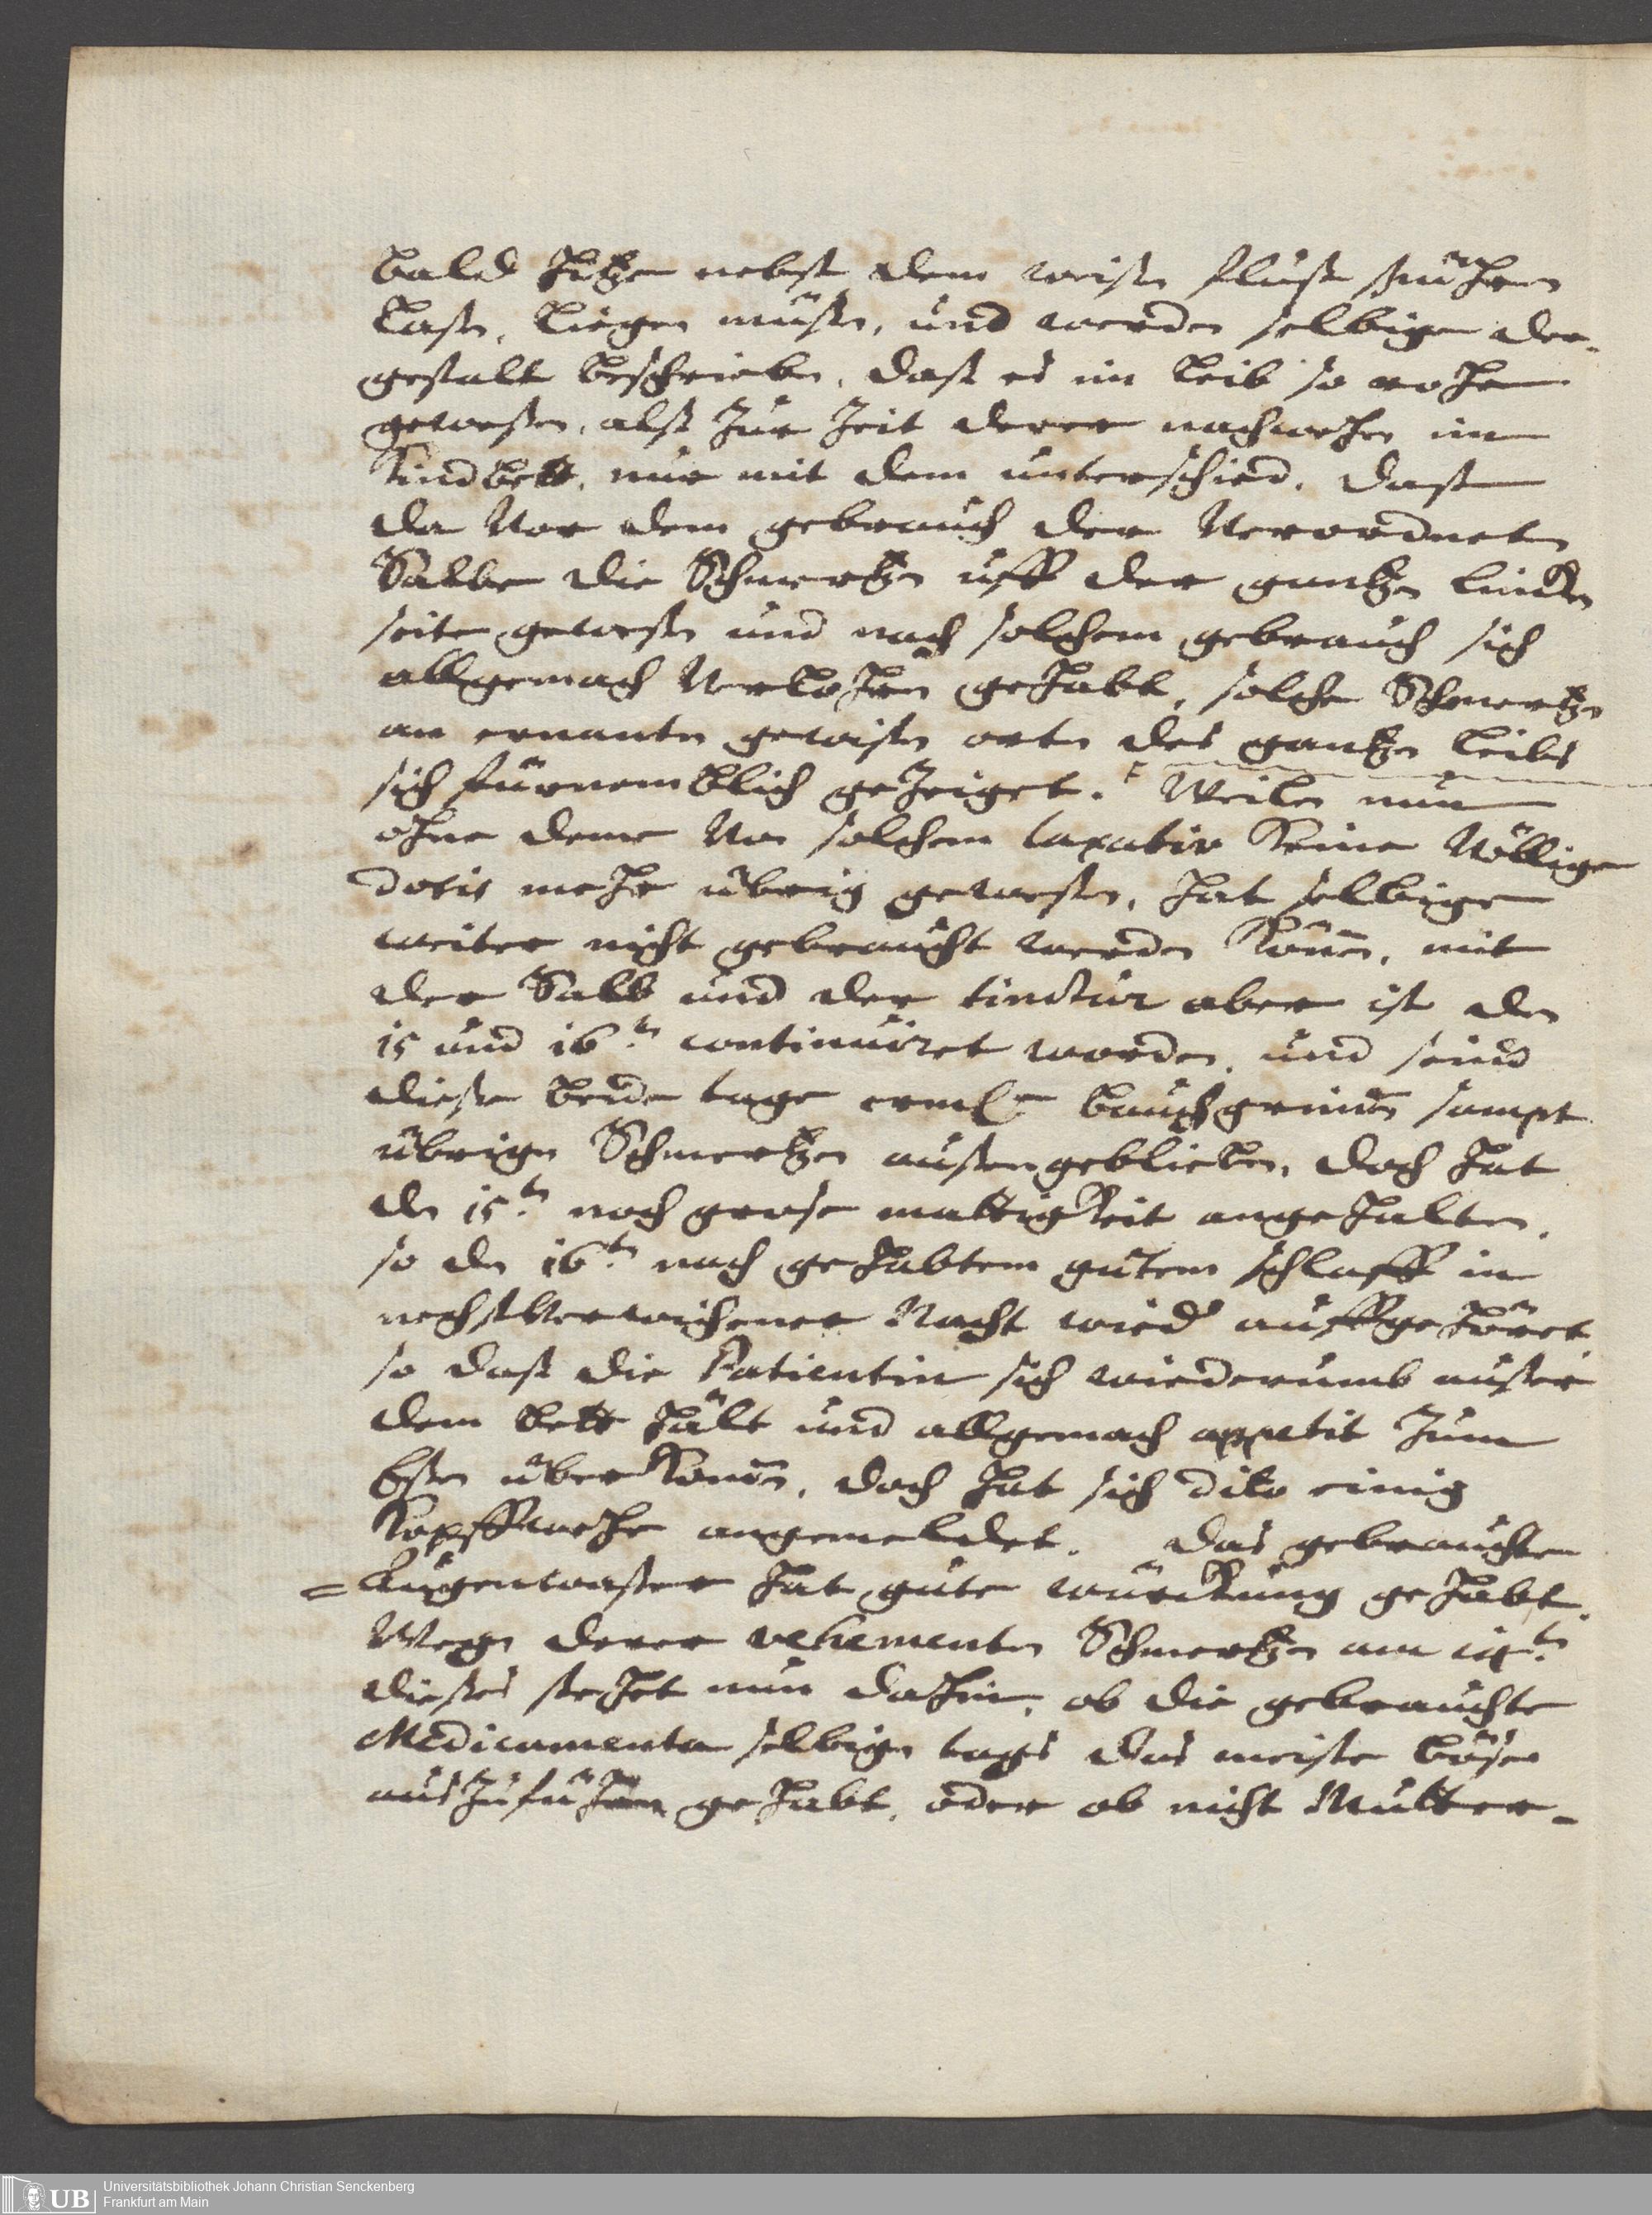 bald hitzen nebst dem weisen fluß spühren
lasen, liegen müsen, und werden selbige der-
gestalt beschrieben, daß es im leib so rohe
gewesen, alß zur Zeit derer nachwehen im
Kindbett, nur mit dem unterschied, daß
da vor dem gebrauch der verordneten
Salbe die Schmertzen uff der gantzen lincken
seite gewesen und nach solchem gebrauch sich
allgemach verlohren gehabt, solche Schmertzen
an ernanten gewisen orten des gantzen leibs
sich fürnemblich gezeiget. Weilen nun
ohne deme von solchem laxativ keine völlige
dosis mehr übrig gewesen, hat selbige
weiter nicht gebraucht werden können, mit
der Salb und der tinctur aber ist den
15 und 16.ten continuiret worden, und seind
diese beide tage bauchgrimen sampt
übrigen Schmertzen ausengeblieben, doch hat
den 15.ten noch grose mattigkeit angehalten,
so den 16.ten nach gehabtem gutem schlaff in
nechstverwichener Nacht wied auffgehöret,
so daß die Patientin sich wiederumb auser
dem bett hält und allgemach appetit zum
Esen überkomen, doch hat sich dito einig
Kopffwehe angemeldet. Das gebrauchte
= Augenwaser hat gute würckung gehabt.
Wegen derer vehementen Schmertzen am 14.ten
dieses stehet nun dahin, ob die gebrauchte
Medicamenta selbigen tags das meiste böse
auszuführen gehabt, oder ob nicht Mutter-
Universitätsbibliothek Johann Christian Senckenberg
Frankfurt am Main
UB